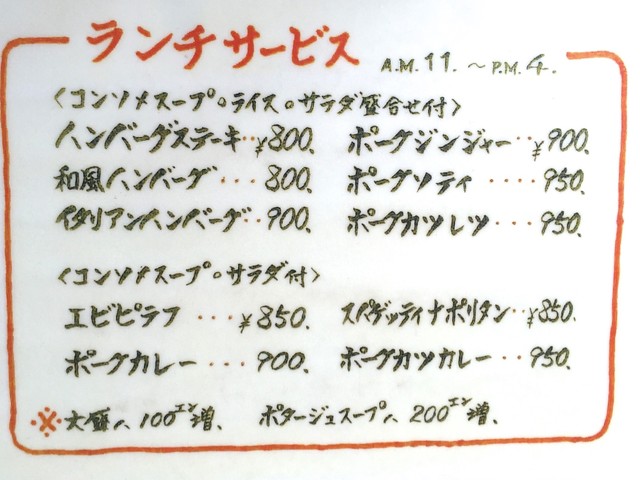 ランチサービス A.M.11.～P.M.4.
〈コンソメスープ・ライス・サラダ盛合せ付〉
ハンバーグステーキ‥¥800. ポークジンジャー‥¥900.
和風ハンバーグ‥‥800. ポークソティ‥‥950.
イタリアンハンバーグ‥900. ポークカツレツ‥‥950.
〈コンソメスープ・サラダ付〉
エビピラフ‥‥¥850. スパゲッティナポリタン‥¥850.
ポークカレー‥‥900. ポークカツカレー‥‥950.
※大盛ハ100エン増. ポタージュスープハ200エン増.